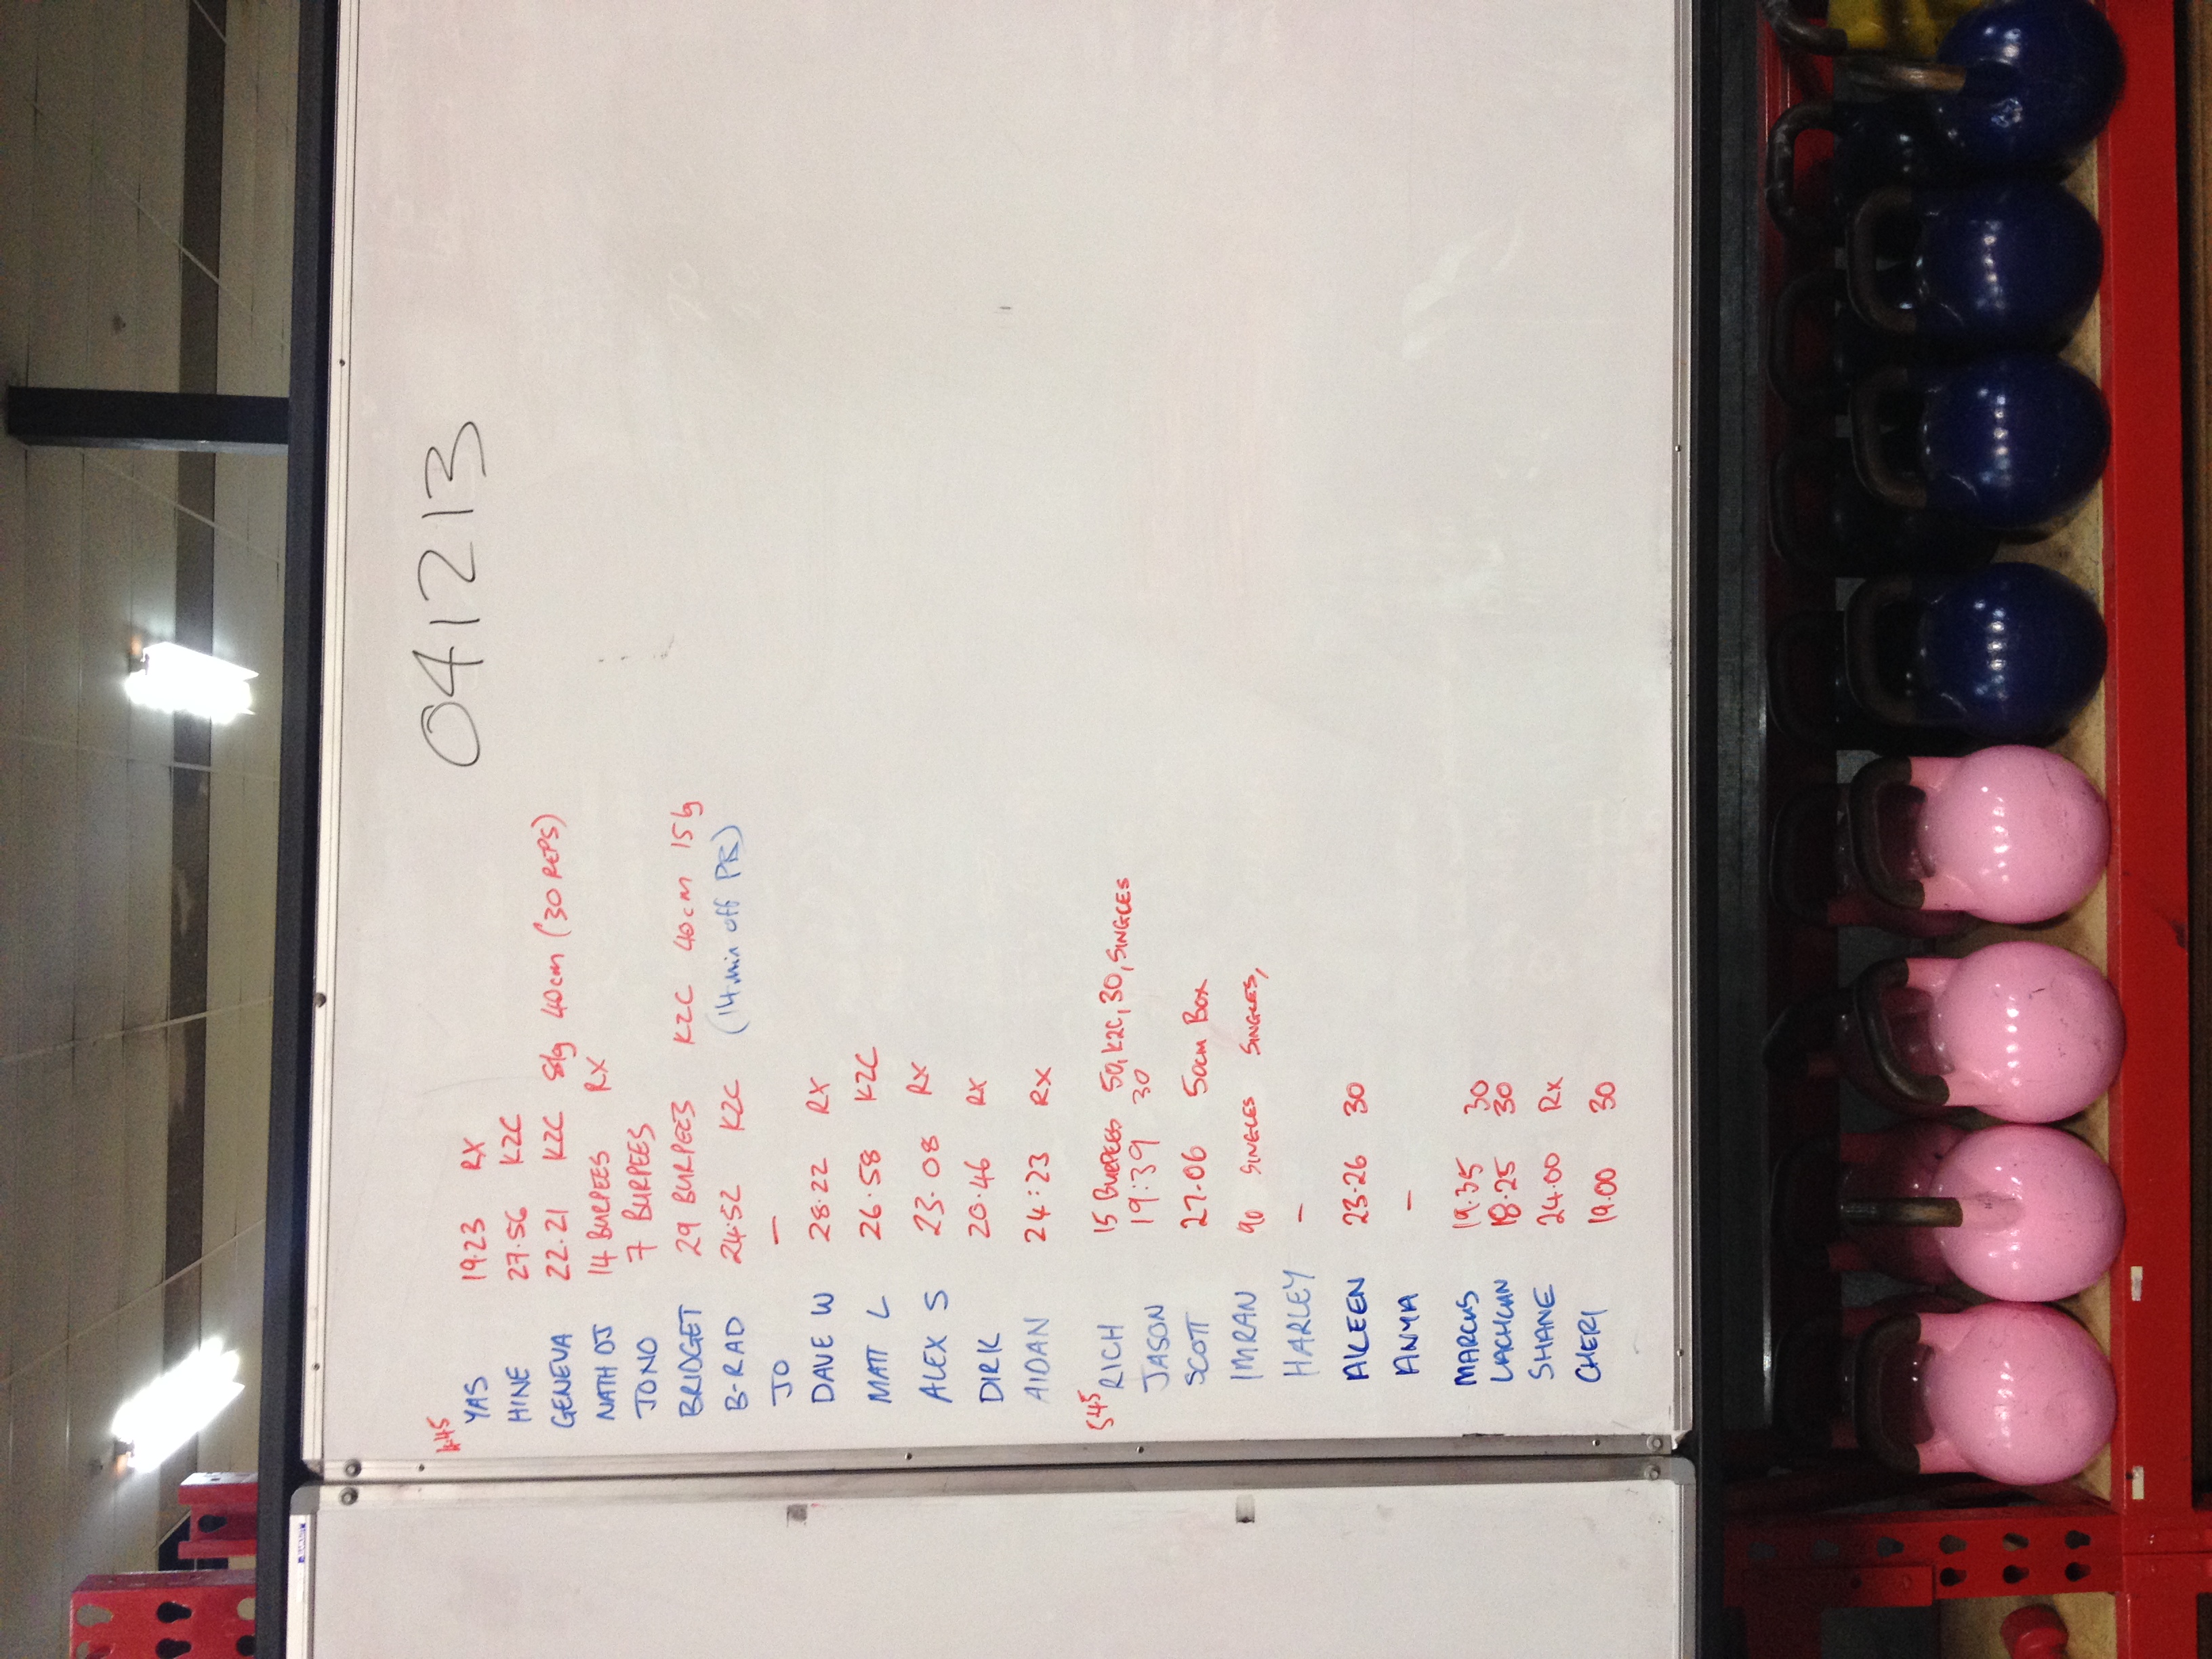 041213
YAS 19.23 RX
HINE 27.56 K2C
GENEVA 22.21 K2C 8kg 40cm (30 REPS)
NATH DJ 14 BURPEES RX
JONO 7 BURPEES
BRIDGET 29 BURPEES K2C 40cm 15kg
B-RAD 24:52 K2C (14min off PB)
JO —
DAVE W 28.22 RX
MATT L 26.58 K2C
ALEX S 23.08 RX
DIRK 20.46 RX
AIDAN 24:23 RX
545
RICH 15 BURPEES 50, K2C, 30, SINGLES
JASON 19:39 30
SCOTT 27.06 50cm BOX
IMRAN 90 SINGLES SINGLES,
HARLEY —
AILEEN 23.26 30
ANYA —
MARCUS 19.35 30
LACHLAN 18.25 30
SHANE 24.00 Rx
CHERI 19.00 30